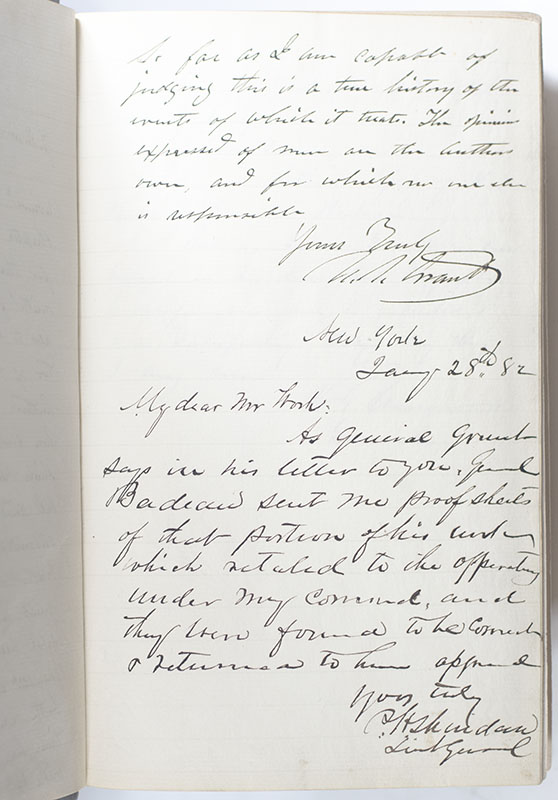 So far as I am capable of
judging this is a true history of the
events of which it treats. The opinions
expressed of men are the authors
own, and for which no one else
is responsible
Yours Truly
U. S. Grant
New York
Jany 28th 82
My dear Mr Work:
As General Grant
says in his letter to you, Genl
Badeau sent me proof sheets
of that portion of his work
which related to the operating
under my Command, and
they were found to be Correct
& returned to him approved
Yours truly
P. H. Sheridan
Lieut General